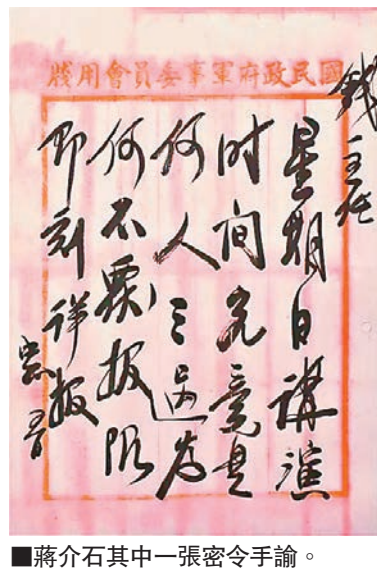 國民政府軍事委員會用牋
錢主任
星期日講演
时间究竟是
何人之过为
何不禀报限
即刻详报
■蔣介石其中一張密令手諭。